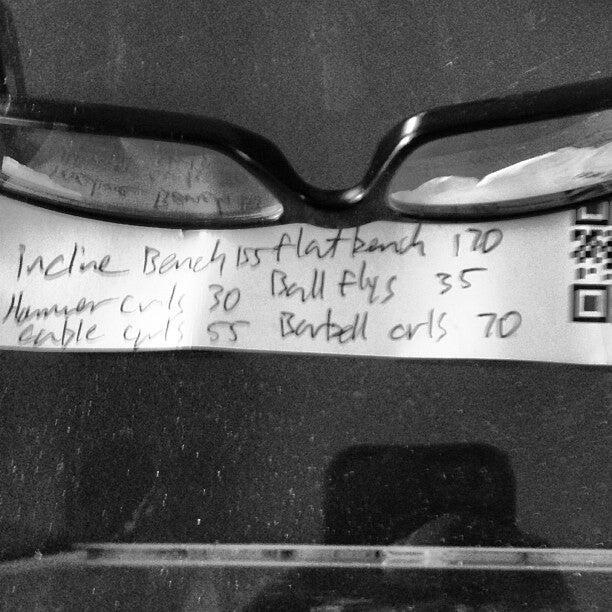 Incline Bench 155 flat bench 170
Hammer curls 30 Ball flys 35
cable curls 55 Barbell curls 70